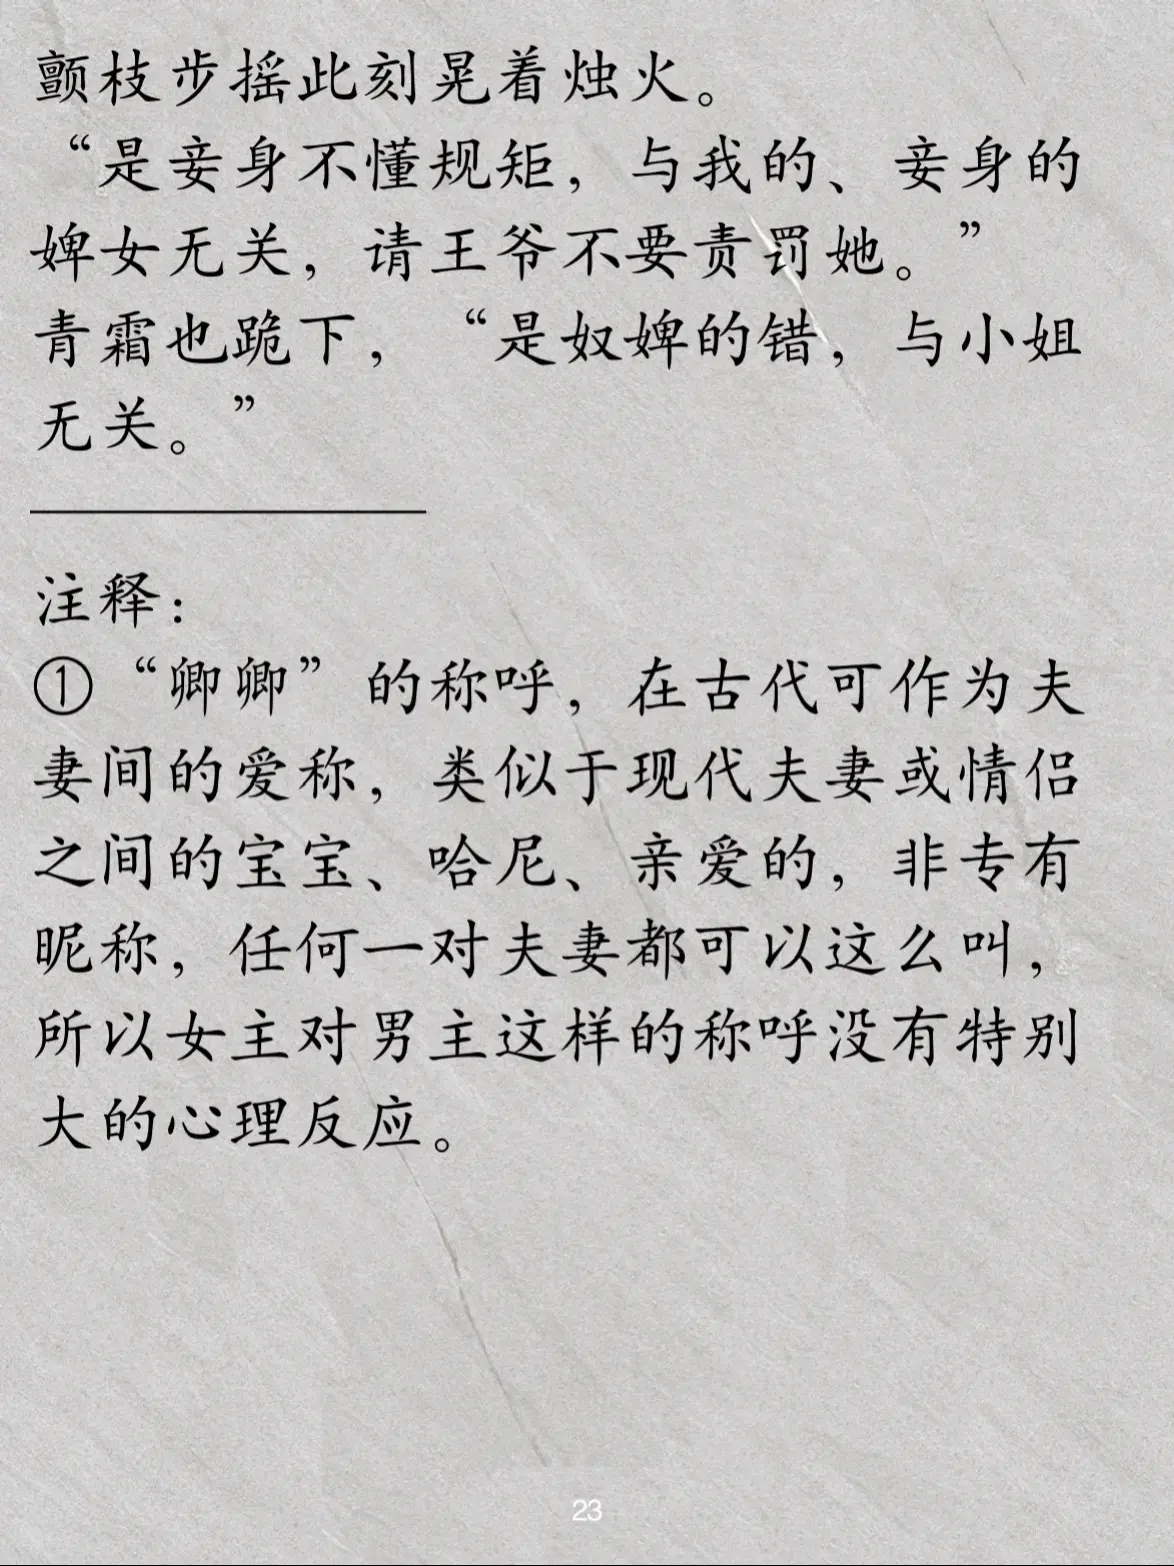 颤枝步摇此刻晃着烛火。
“是妾身不懂规矩，与我的、妾身的
婢女无关，请王爷不要责罚她。”
青霜也跪下，“是奴婢的错，与小姐
无关。”
注释：
①“卿卿”的称呼，在古代可作为夫
妻间的爱称，类似于现代夫妻或情侣
之间的宝宝、哈尼、亲爱的，非专有
昵称，任何一对夫妻都可以这么叫，
所以女主对男主这样的称呼没有特别
大的心理反应。
23